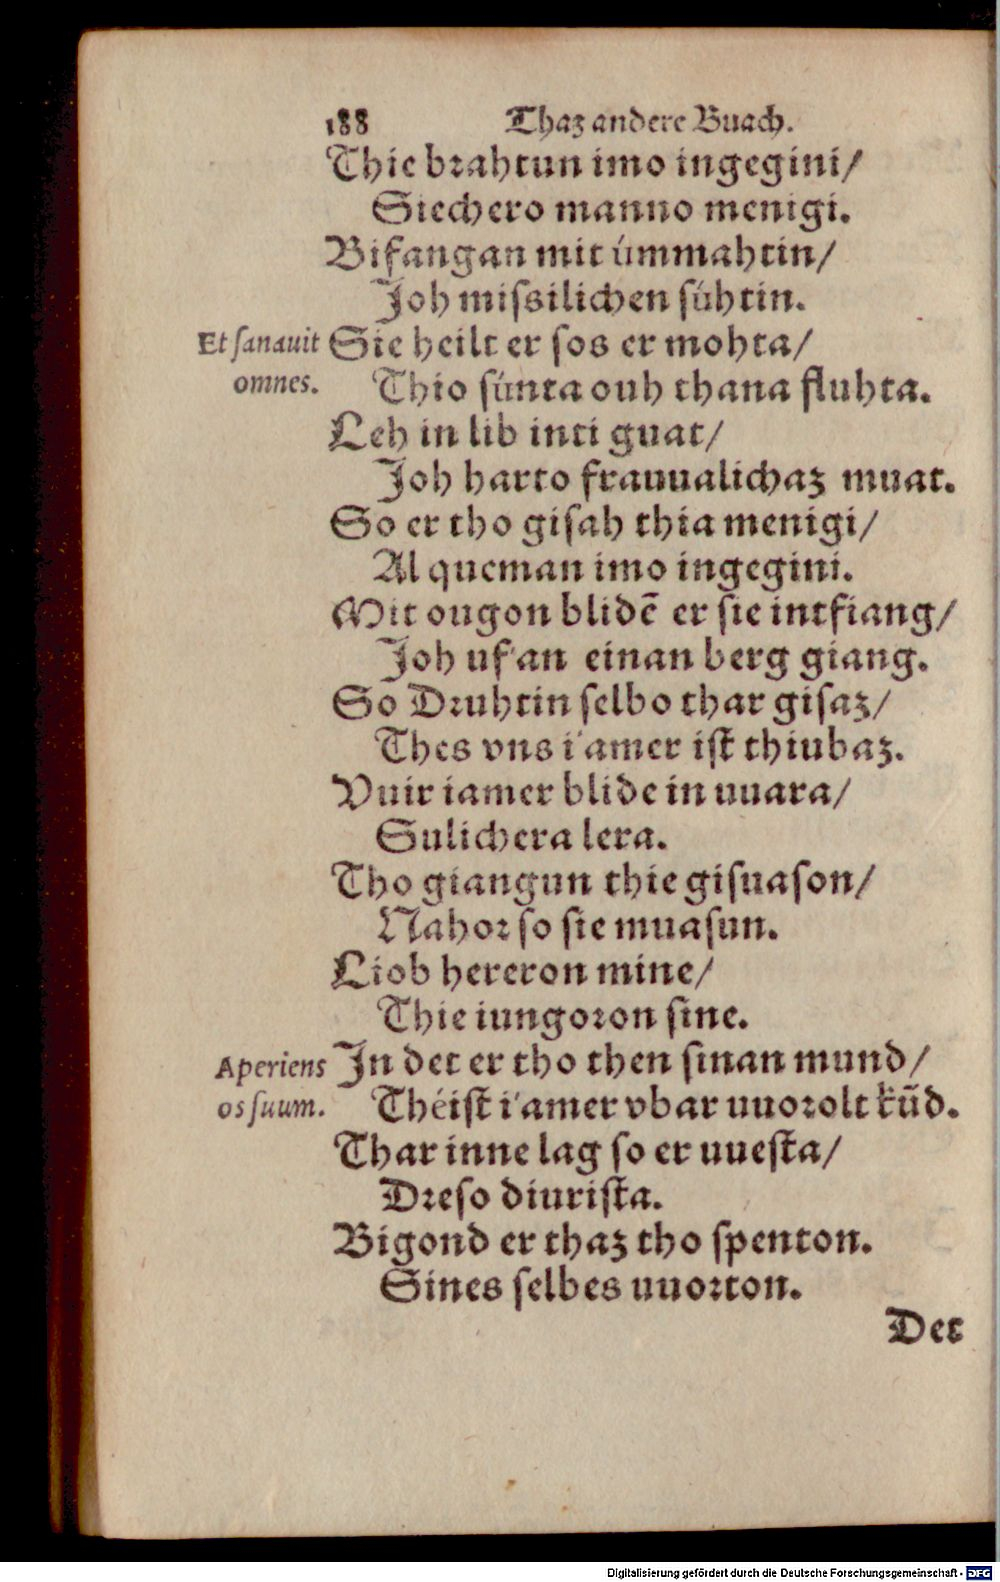 188 Thaz andere Buach.
Thie brahtun imo ingegini/
Siechero manno menigi.
Bifangan mit úmmahtin/
Joh missilichen súhtin.
Et sanauit Sie heilt er sos er mohta/
omnes. Thio súnta ouh thana fluhta.
Leh in lib inti guat/
Joh harto frauualichaz muat.
So er tho gisah thia menigi/
Al queman imo ingegini.
Mit ougon blidē er sie intfiang/
Joh uf'an einan berg giang.
So Druhtin selbo thar gisaz/
Thes vns i'amer ist thiubaz.
Vuir iamer blide in uuara/
Sulichera lera.
Tho giangun thie gisuason/
Nahor so sie muasun.
Liob hereron mine/
Thie iungoron sine.
Aperiens Jn det er tho then sinan mund/
os suum. Théist i'amer vbar uuorolt kūd.
Thar inne lag so er uuesta/
Dreso diurista.
Bigond er thaz tho spenton.
Sines selbes uuorton.
Det
Digitalisierung gefördert durch die Deutsche Forschungsgemeinschaft - DFG